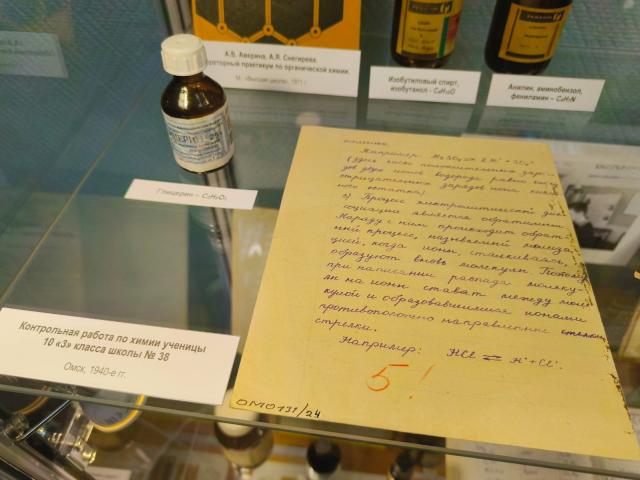 А.В. Аверина, А.Я. Снегирева.
Лабораторный практикум по органической химии.
М.: «Высшая школа», 1971 г.
Изобутиловый спирт,
изобутанол - C₄H₁₀O
Анилин, аминобензол,
фениламин – C₆H₇N
Глицерин – C₃H₈O₃
Контрольная работа по химии ученицы
10 «З» класса школы № 38
Омск, 1940-е гг.
Например: H₂SO₄ ⇄ 2H˙ + SO₄"
(Здесь число положительных заря-
дов двух ионов водорода равно числу
отрицательных зарядов иона кислот-
ного остатка)
Процесс электролитической дис-
социации является обратимым.
Наряду с ним происходит обрат-
ный процесс, называемый молиза-
цией, когда ионы, сталкиваясь,
образуют вновь молекулы. Поэтому
при написании распада молеку-
лы на ионы ставят между моле-
кулой и образовавшимися ионами
противоположно направленные
стрелки.
Например: HCl ⇄ H˙ + Cl'.
5!
ОМО131/24